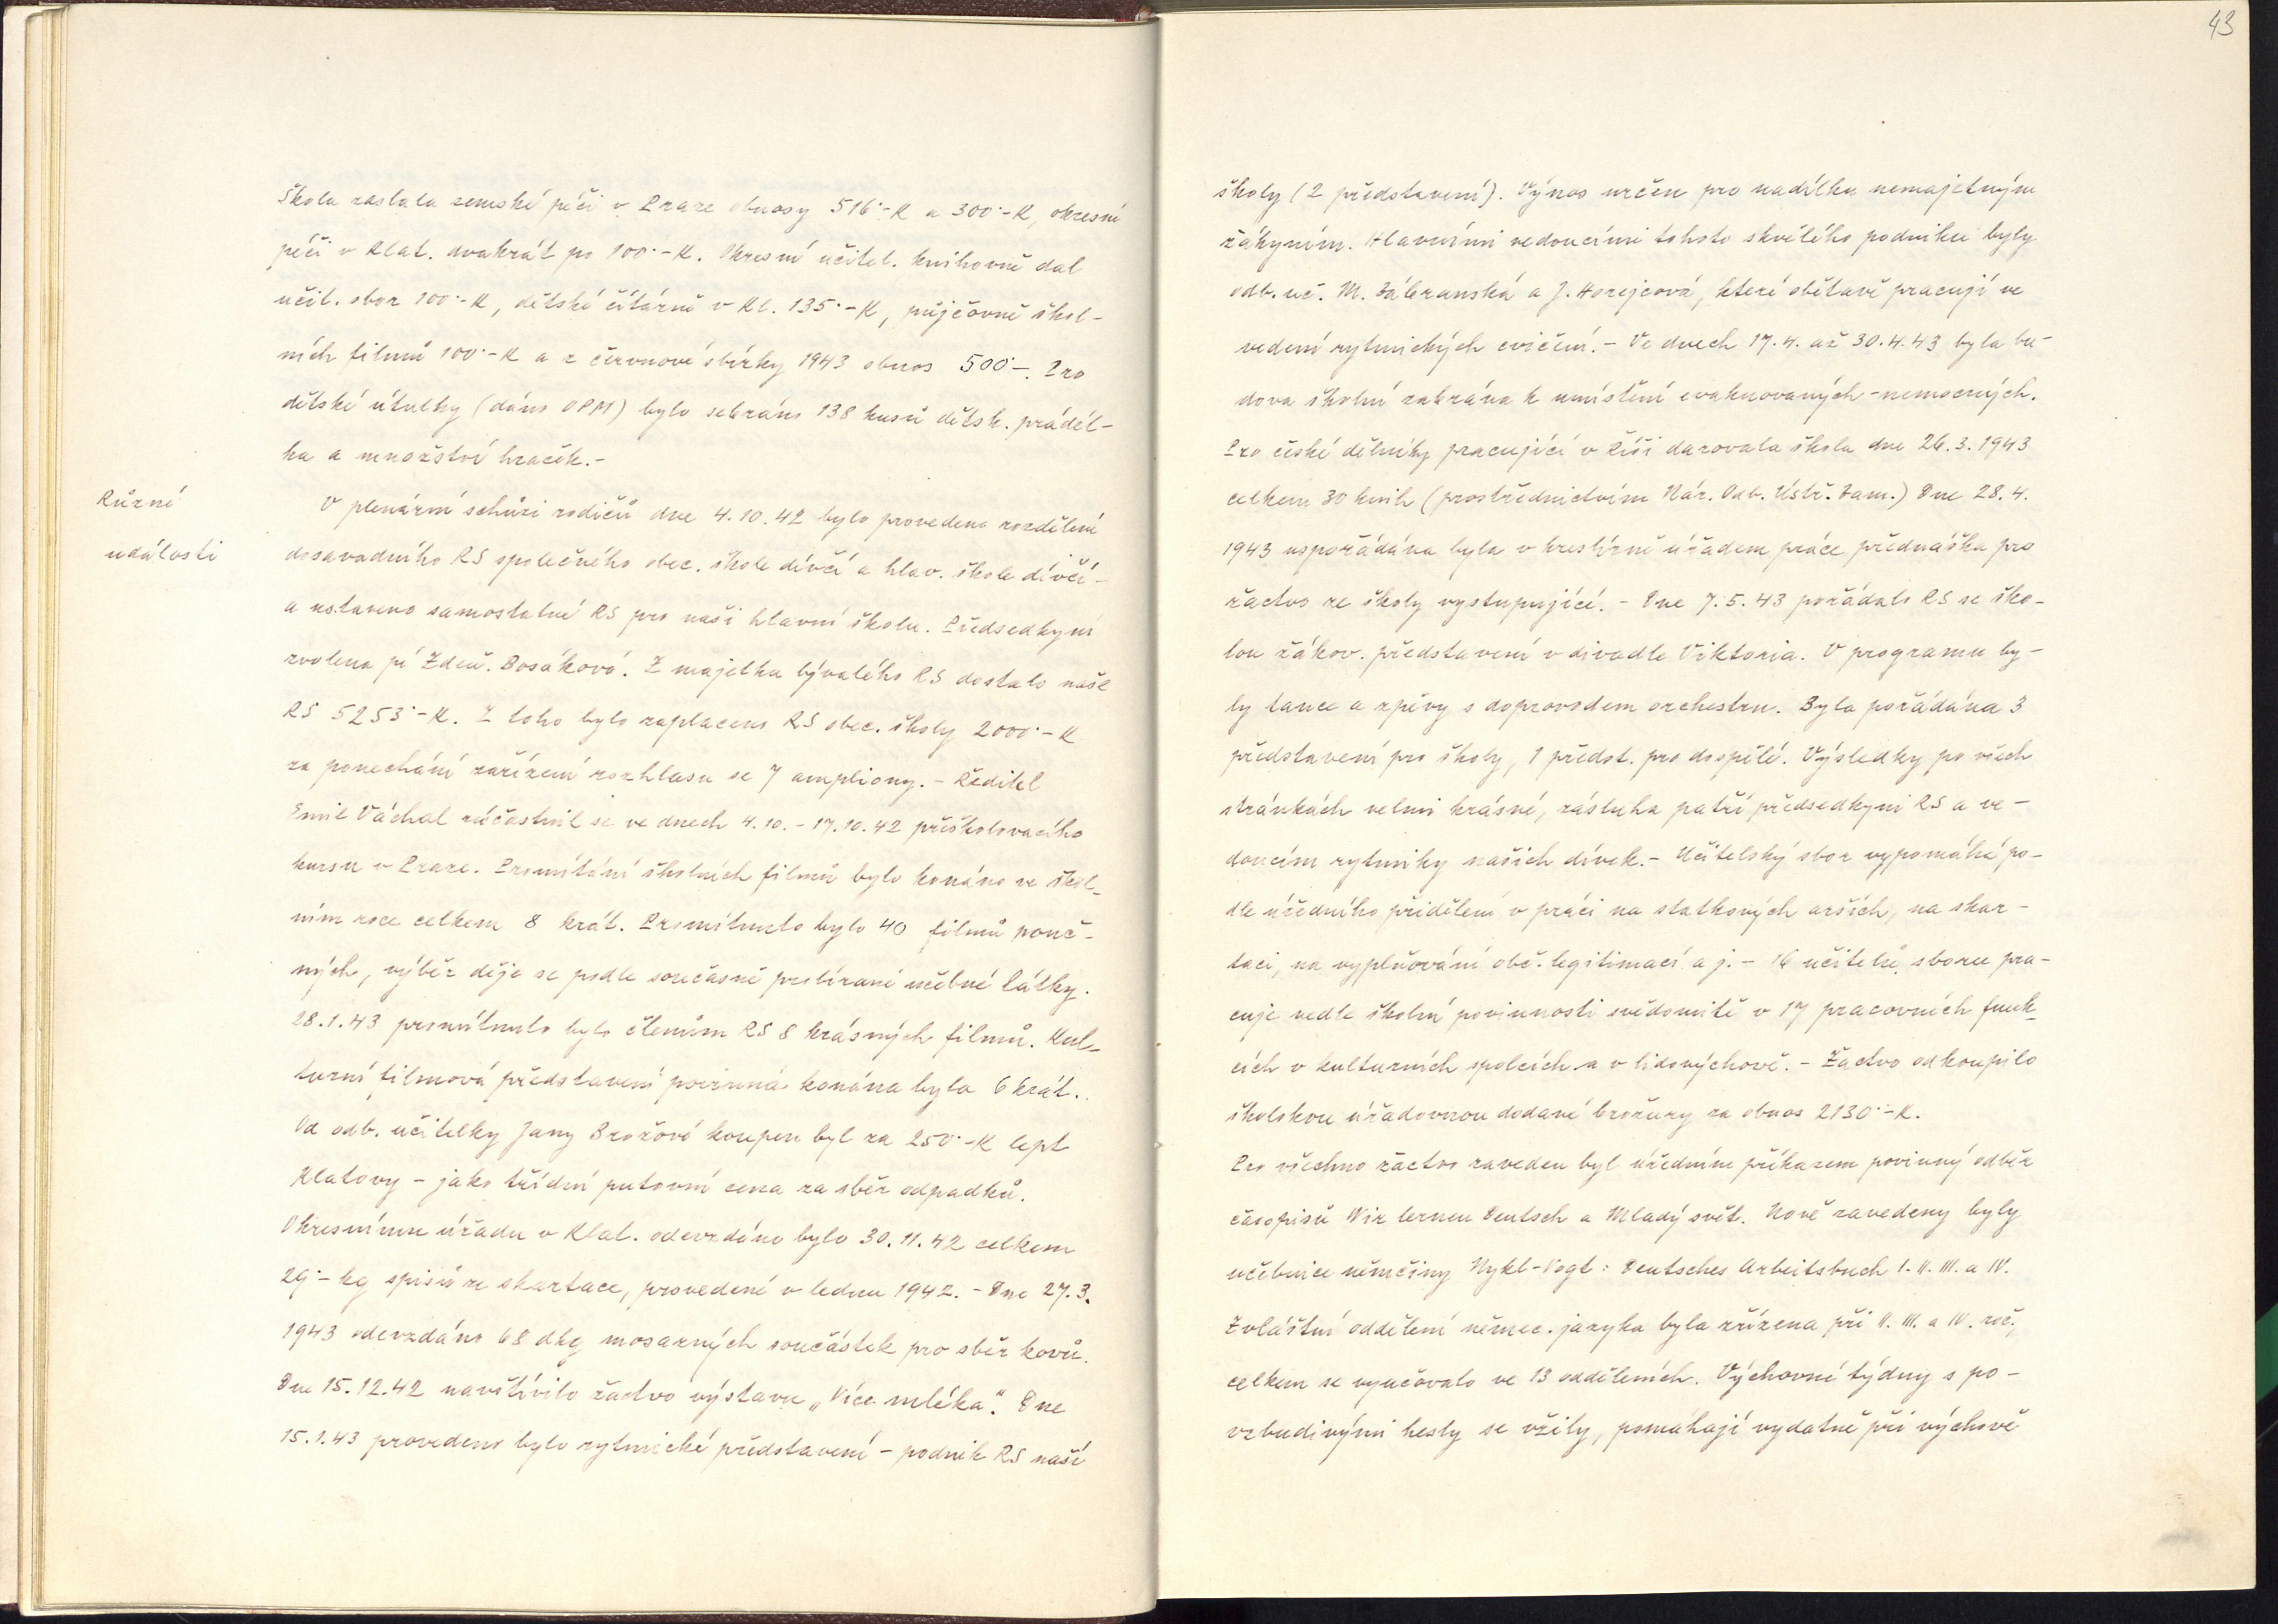 Škola zaslala zemské péči v Praze obnosy 516·-K a 300·-K, okresní
péči v Klat. dvakrát po 100·-K. Okresní učitel. knihovně dal
učit. sbor 100·-K, dětské čítárně v Kl. 135·-K, půjčovně škol-
ních filmů 100·-K a z červnové sbírky 1943 obnos 500·-. Pro
dětské útulky (dáno OPM) bylo sebráno 138 kusů dětsk. prádél-
ka a množství hraček.-
Různé
události
V plenární schůzi rodičů dne 4.10.42 bylo provedeno rozdělení
dosavadního RS společného obec. škole dívčí a hlav. škole dívčí-
a ustaveno samostatné RS pro naši hlavní školu. Předsedkyní
zvolena pí Zdeň. Bosáková. Z majetku bývalého RS dostalo naše
RS 5253·-K. Z toho bylo zaplaceno RS obec. školy 2000·-K
za ponechání zařízení rozhlasu se 7 ampliony. - Ředitel
Emil Váchal zúčastnil se ve dnech 4.10.-17.10.42 přeškolovacího
kursu v Praze. Promítání školních filmů bylo konáno ve škol-
ním roce celkem 8 krát. Promítnuto bylo 40 filmů pouč-
ných, výběr děje se podle současně probírané učebné látky.
28.1.43 promítnuto bylo členům RS 8 krásných filmů. Kul-
turní filmová představení povinná konána byla 6 krát.
Od odb. učitelky Jany Brožové koupen byl za 250·-K lept
Klatovy - jako třídní putovní cena za sběr odpadků.
Okresnímu úřadu v Klat. odevzdáno bylo 30.11.42 celkem
29·- kg spisů ze skartace, provedené v lednu 1942. - Dne 27.3.
1943 odevzdáno 68 dkg mosazných součástek pro sběr kovů.
Dne 15.12.42 navštívilo žactvo výstavu „Více mléka". Dne
15.1.43 provedeno bylo rytmické představení - podnik RS naší
43
školy (2 představení). Výnos určen pro nadílku nemajetným
žákyním. Hlavními vedoucími tohoto skvělého podniku byly
odb. uč. M. Zábranská a J. Horejcová, které obětavě pracují ve
vedení rytmických cvičení. - Ve dnech 17.4. až 30.4.43 byla bu-
dova školní zabrána k umístění evakuovaných-nemocných.
Pro české dělníky pracující v Říši darovala škola dne 26.3.1943
celkem 30 knih (prostřednictvím Nár. Odb. Ústř. Zam.) Dne 28.4.
1943 uspořádána byla v kreslírně úřadem práce přednáška pro
žactvo ze školy vystupující. - Dne 7.5.43 pořádalo RS se ško-
lou žákov. představení v divadle Viktoria. V programu by-
ly tance a zpěvy s doprovodem orchestru. Byla pořádána 3
představení pro školy, 1 předst. pro dospělé. Výsledky po všech
stránkách velmi krásné, zásluha patří předsedkyni RS a ve-
doucím rytmiky našich dívek. - Učitelský sbor vypomáhá po-
dle úředního přidělení v práci na statkových arších, na skar-
taci, na vyplňování obč. legitimací a j. - 16 učitelů sboru pra-
cuje vedle školní povinnosti svědomitě v 17 pracovních funk-
cích v kulturních spolcích a v lidovýchově. - Žactvo odkoupilo
školskou úřadovnou dodané brožury za obnos 2130·-K.
Pro všechno žactvo zaveden byl úředním příkazem povinný odběr
časopisů Wir lernen Deutsch a Mladý svět. Nově zavedeny byly
učebnice němčiny Nykl-Vogt: Deutsches Arbeitsbuch I. II. III. a IV.
Zvláštní oddělení němec. jazyka byla zřízena při II. III. a IV. roč.,
celkem se vyučovalo ve 13 odděleních. Výchovné týdny s po-
vzbudivými hesly se vžily, pomáhají vydatně při výchově